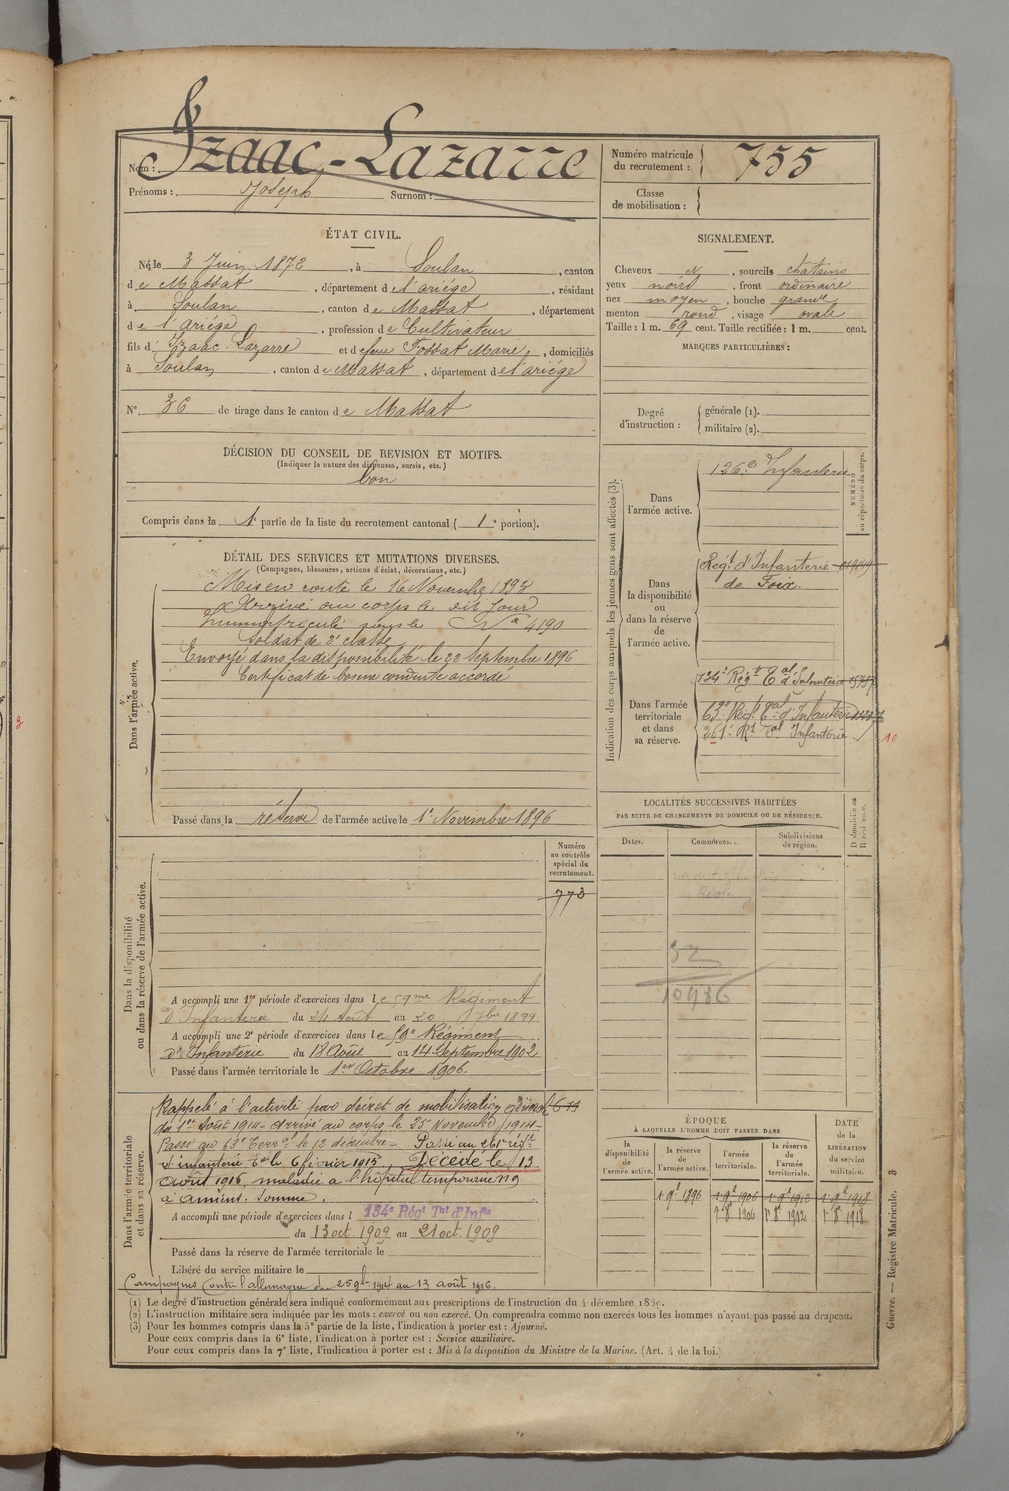 Nom : Izaac-Lazarre
Prénoms : Joseph Surnom :
Numéro matricule du recrutement : 755
Classe de mobilisation :
ÉTAT CIVIL.
Né le 3 Juin 1872, à Soulan, canton
de Massat, département de l'ariége, résidant
à Soulan, canton de Massat, département
de l'ariége, profession de Cultivateur
fils d' Izaac-Lazarre et de feue Fossat Marie, domiciliés
à Soulan, canton de Massat, département de l'ariége
N° 36 de tirage dans le canton de Massat
SIGNALEMENT.
Cheveux N, sourcils châtains
yeux noirs, front ordinaire
nez moyen, bouche grande
menton rond, visage ovale
Taille : 1 m. 69 cent. Taille rectifiée : 1 m. cent.
MARQUES PARTICULIÈRES :
Degré d'instruction : générale (1).
militaire (2).
DÉCISION DU CONSEIL DE REVISION ET MOTIFS.
(Indiquer la nature des dispenses, sursis, etc.)
bon
Compris dans la 1e partie de la liste du recrutement cantonal ( 1e portion).
DÉTAIL DES SERVICES ET MUTATIONS DIVERSES.
(Campagnes, blessures, actions d'éclat, décorations, etc.)
Dans l'armée active.
Mis en route le 16 Novembre 1893
Arrivé au corps le dit jour
Immatriculé sous le N° 4190
Soldat de 2e classe
Envoyé dans la disponibilité le 22 Septembre 1896
Certificat de bonne conduite accordé
Passé dans la réserve de l'armée active le 1er Novembre 1896
Indication des corps auxquels les jeunes gens sont affectés (3).
NUMÉRO au répertoire du corps.
Dans l'armée active.
126e d'Infanterie
Dans la disponibilité ou dans la réserve de l'armée active.
Régt d'Infanterie
de Foix.
Dans l'armée territoriale et dans sa réserve.
134e Régt Tal d'Infanterie
63e Régt Tal d'Infanterie
261e Rt Tal Infanterie
10
LOCALITÉS SUCCESSIVES HABITÉES
PAR SUITE DE CHANGEMENTS DE DOMICILE OU DE RÉSIDENCE.
Dates. Communes. Subdivisions de région.
D domicile ou R résidence.
32
10986
Dans la disponibilité ou dans la réserve de l'armée active.
Numéro au contrôle spécial du recrutement.
773
A accompli une 1re période d'exercices dans le 59me Régiment
d'Infanterie du 24 Août au 20 7bre 1899
A accompli une 2e période d'exercices dans le 59e Régiment
d'Infanterie du 18 Août au 14 Septembre 1902
Passé dans l'armée territoriale le 1er Octobre 1906.
Dans l'armée territoriale et dans sa réserve.
Rappelé à l'activité par décret de mobilisation générale
du 1er Août 1914 - Arrivé au corps le 25 Novembre 1914 -
Passé au 63e Terral le 12 décembre - Passé au 261e régt
d'infanterie Tal le 6 février 1915. Décédé le 13
Août 1916, maladie à l'hôpital temporaire n°9
à Amiens. Somme.
A accompli une période d'exercices dans l 134e Régt Tal d'Infie
du 13 oct. 1909 au 21 oct. 1909
Passé dans la réserve de l'armée territoriale le
Libéré du service militaire le
Campagnes Contre l'allemagne du 25 9b 1914 au 13 août 1916.
ÉPOQUE
À LAQUELLE L'HOMME DOIT PASSER DANS
la disponibilité de l'armée active.
la réserve de l'armée active.
l'armée territoriale.
la réserve de l'armée territoriale.
DATE de la LIBÉRATION du service militaire.
1 9e 1896 1 9e 1906 1 9e 1912 1 9e 1918
1 8e 1906 1 8e 1912 1 8e 1918
(1) Le degré d'instruction générale sera indiqué conformément aux prescriptions de l'instruction du 4 décembre 1889.
(2) L'instruction militaire sera indiquée par les mots : exercé ou non exercé. On comprendra comme non exercés tous les hommes n'ayant pas passé au drapeau.
(3) Pour les hommes compris dans la 5e partie de la liste, l'indication à porter est : Ajourné.
Pour ceux compris dans la 6e liste, l'indication à porter est : Service auxiliaire.
Pour ceux compris dans la 7e liste, l'indication à porter est : Mis à la disposition du Ministre de la Marine. (Art. 4 de la loi.)
Guerre. — Registre Matricule. 3